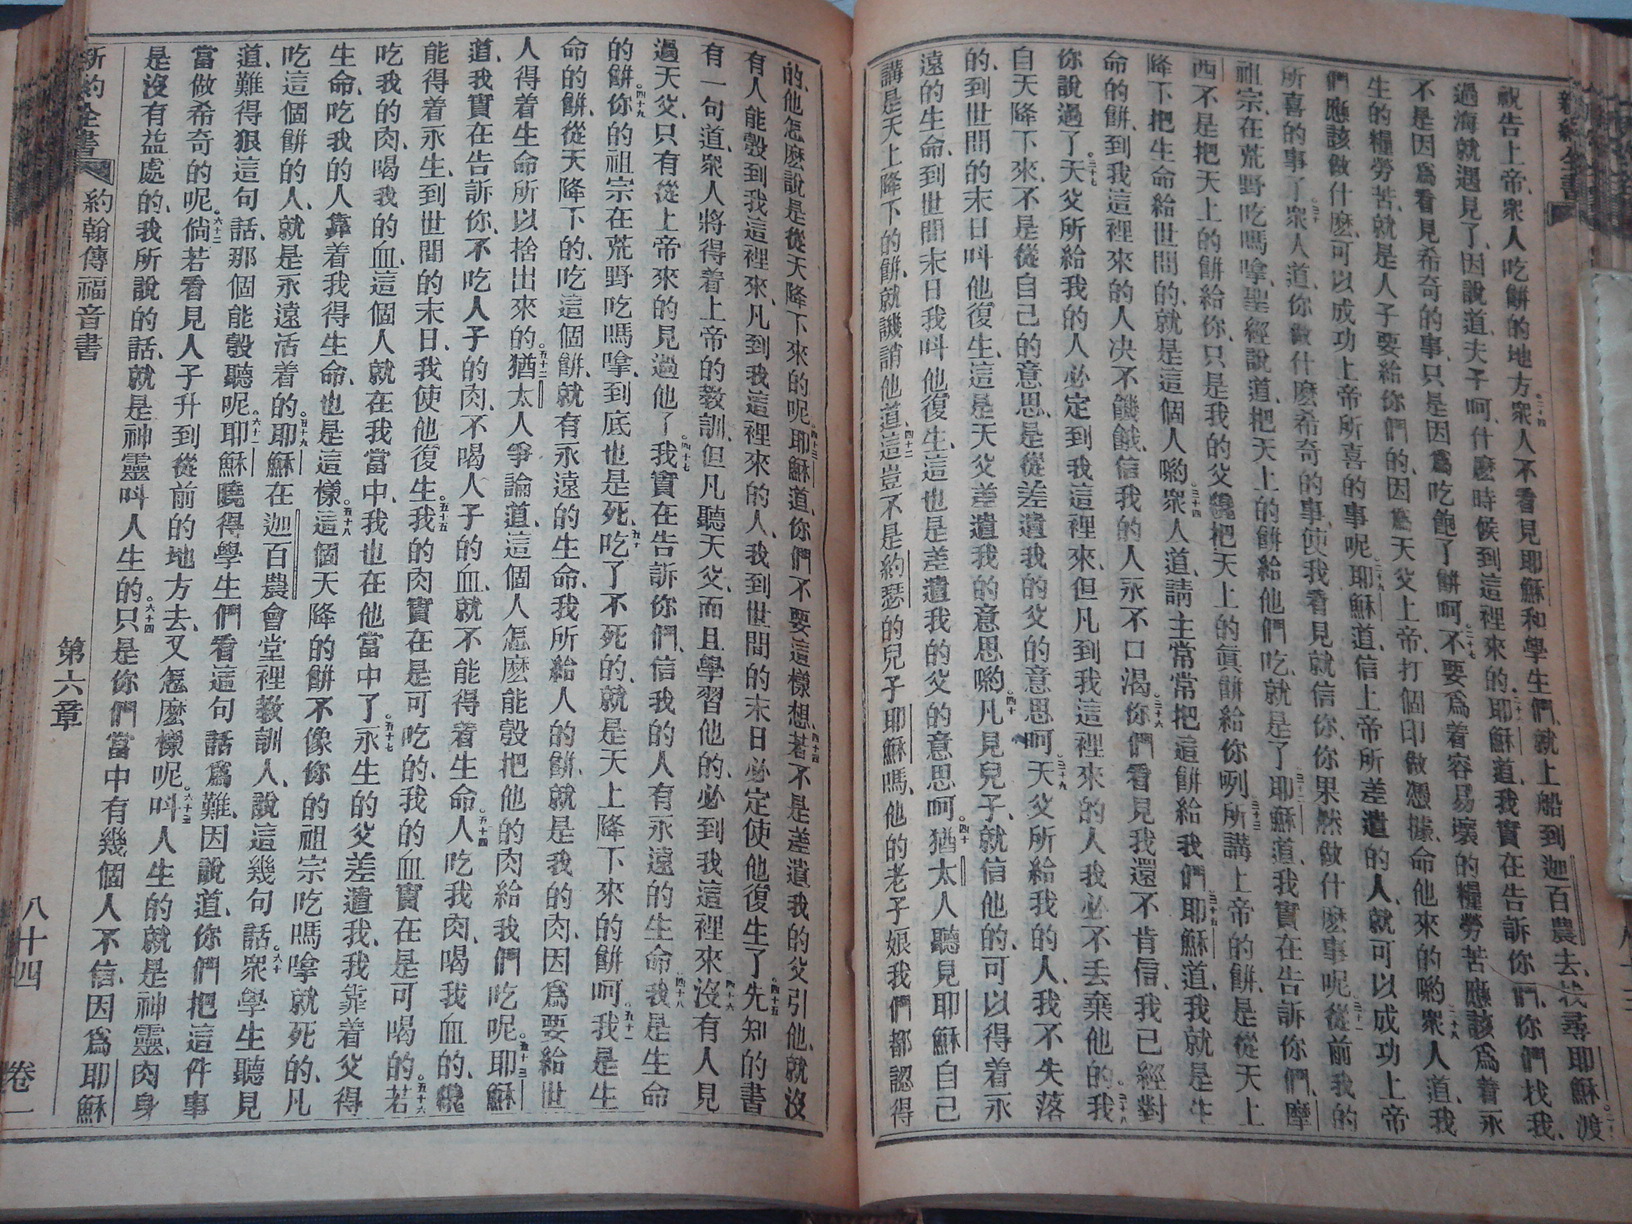 祝告上帝、衆人吃餅的地方。二十四衆人不看見耶穌和學生們、就上船到迦百農去、找尋耶穌。二十五渡
過海就遇見了、因說道、夫子呵、什麼時候到這裡來的。二十六耶穌道、我實在告訴你們、你們找我、
不是因爲看見希奇的事、只是因爲吃飽了餅呵。二十七不要爲着容易壞的糧勞苦、應該爲着永
生的糧勞苦、就是人子要給你們的、因爲天父上帝、打個印做憑據、命他來的喲。二十八衆人道、我
們應該做什麼、可以成功上帝所喜的事呢。二十九耶穌道、信上帝所差遣的人、就可以成功上帝
所喜的事了。三十衆人道、你做什麼希奇的事、使我看見就信你、你果然做什麼事呢。三十一從前我的
祖宗、在荒野吃嗎嗱、聖經說道、把天上的餅給他們吃、就是了。三十二耶穌道、我實在告訴你們、摩
西不是把天上的餅給你、只是我的父、纔把天上的眞餅給你咧。三十三所講上帝的餅、是從天上
降下把生命給世間的、就是這個人喲。三十四衆人道、請主常常把這餅給我們。三十五耶穌道、我就是生
命的餅、到我這裡來的人、决不饑餓、信我的人、永不口渴。三十六你們看見我還不肯信、我已經對
你說過了。三十七天父所給我的人、必定到我這裡來、但凡到我這裡來的人、我必不丢棄他的。三十八我
自天降下來、不是從自己的意思、是從差遣我的父的意思呵。三十九天父所給我的人、我不失落
的、到世間的末日、叫他復生、這是天父差遣我的意思喲。四十凡見兒子、就信他的、可以得着永
遠的生命、到世間末日、我叫他復生、這也是差遣我的父的意思呵。四十一猶太人聽見耶穌自己
講是天上降下的餅、就譏誚他道。四十二這豈不是約瑟的兒子耶穌嗎、他的老子娘、我們都認得
的、他怎麼說是從天降下來的呢。四十三耶穌道、你們不要這樣想。四十四若不是差遣我的父引他、就沒
有人能彀到我這裡來、凡到我這裡來的人、我到世間的末日、必定使他復生了。四十五先知的書
有一句道、衆人將得着上帝的教訓、但凡聽天父、而且學習他的、必到我這裡來。四十六沒有人見
過天父、只有從上帝來的、見過他了。四十七我實在告訴你們、信我的人、有永遠的生命。四十八我是生命
的餅。四十九你的祖宗在荒野吃嗎嗱、到底也是死。五十吃了不死的、就是天上降下來的餅呵。五十一我是生
命的餅、從天降下的、吃這個餅、就有永遠的生命、我所給人的餅、就是我的肉、因爲要給世
人得着生命、所以捨出來的。五十二猶太人爭論道、這個人怎麼能彀把他的肉給我們吃呢。五十三耶穌
道、我實在告訴你、不吃人子的肉、不喝人子的血、就不能得着生命。五十四人吃我肉、喝我血的、纔
能得着永生、到世間的末日、我使他復生。五十五我的肉實在是可吃的、我的血實在是可喝的。五十六若
吃我的肉、喝我的血、這個人就在我當中、我也在他當中了。五十七永生的父差遣我、我靠着父得
生命、吃我的人、靠着我得生命、也是這樣。五十八這個天降的餅、不像你的祖宗吃嗎嗱就死的、凡
吃這個餅的人、就是永遠活着的。五十九耶穌在迦百農會堂裡教訓人、說這幾句話。六十衆學生聽見
道、難得狠這句話、那個能彀聽呢。六十一耶穌曉得學生們看這句話爲難、因說道、你們把這件事
當做希奇的呢。六十二倘若看見人子升到從前的地方去、又怎麼樣呢。六十三叫人生的就是神靈、肉身
是沒有益處的、我所說的話、就是神靈叫人生的。六十四只是你們當中有幾個人不信、因爲耶穌
新約全書 約翰傳福音書 第六章 八十四 卷一